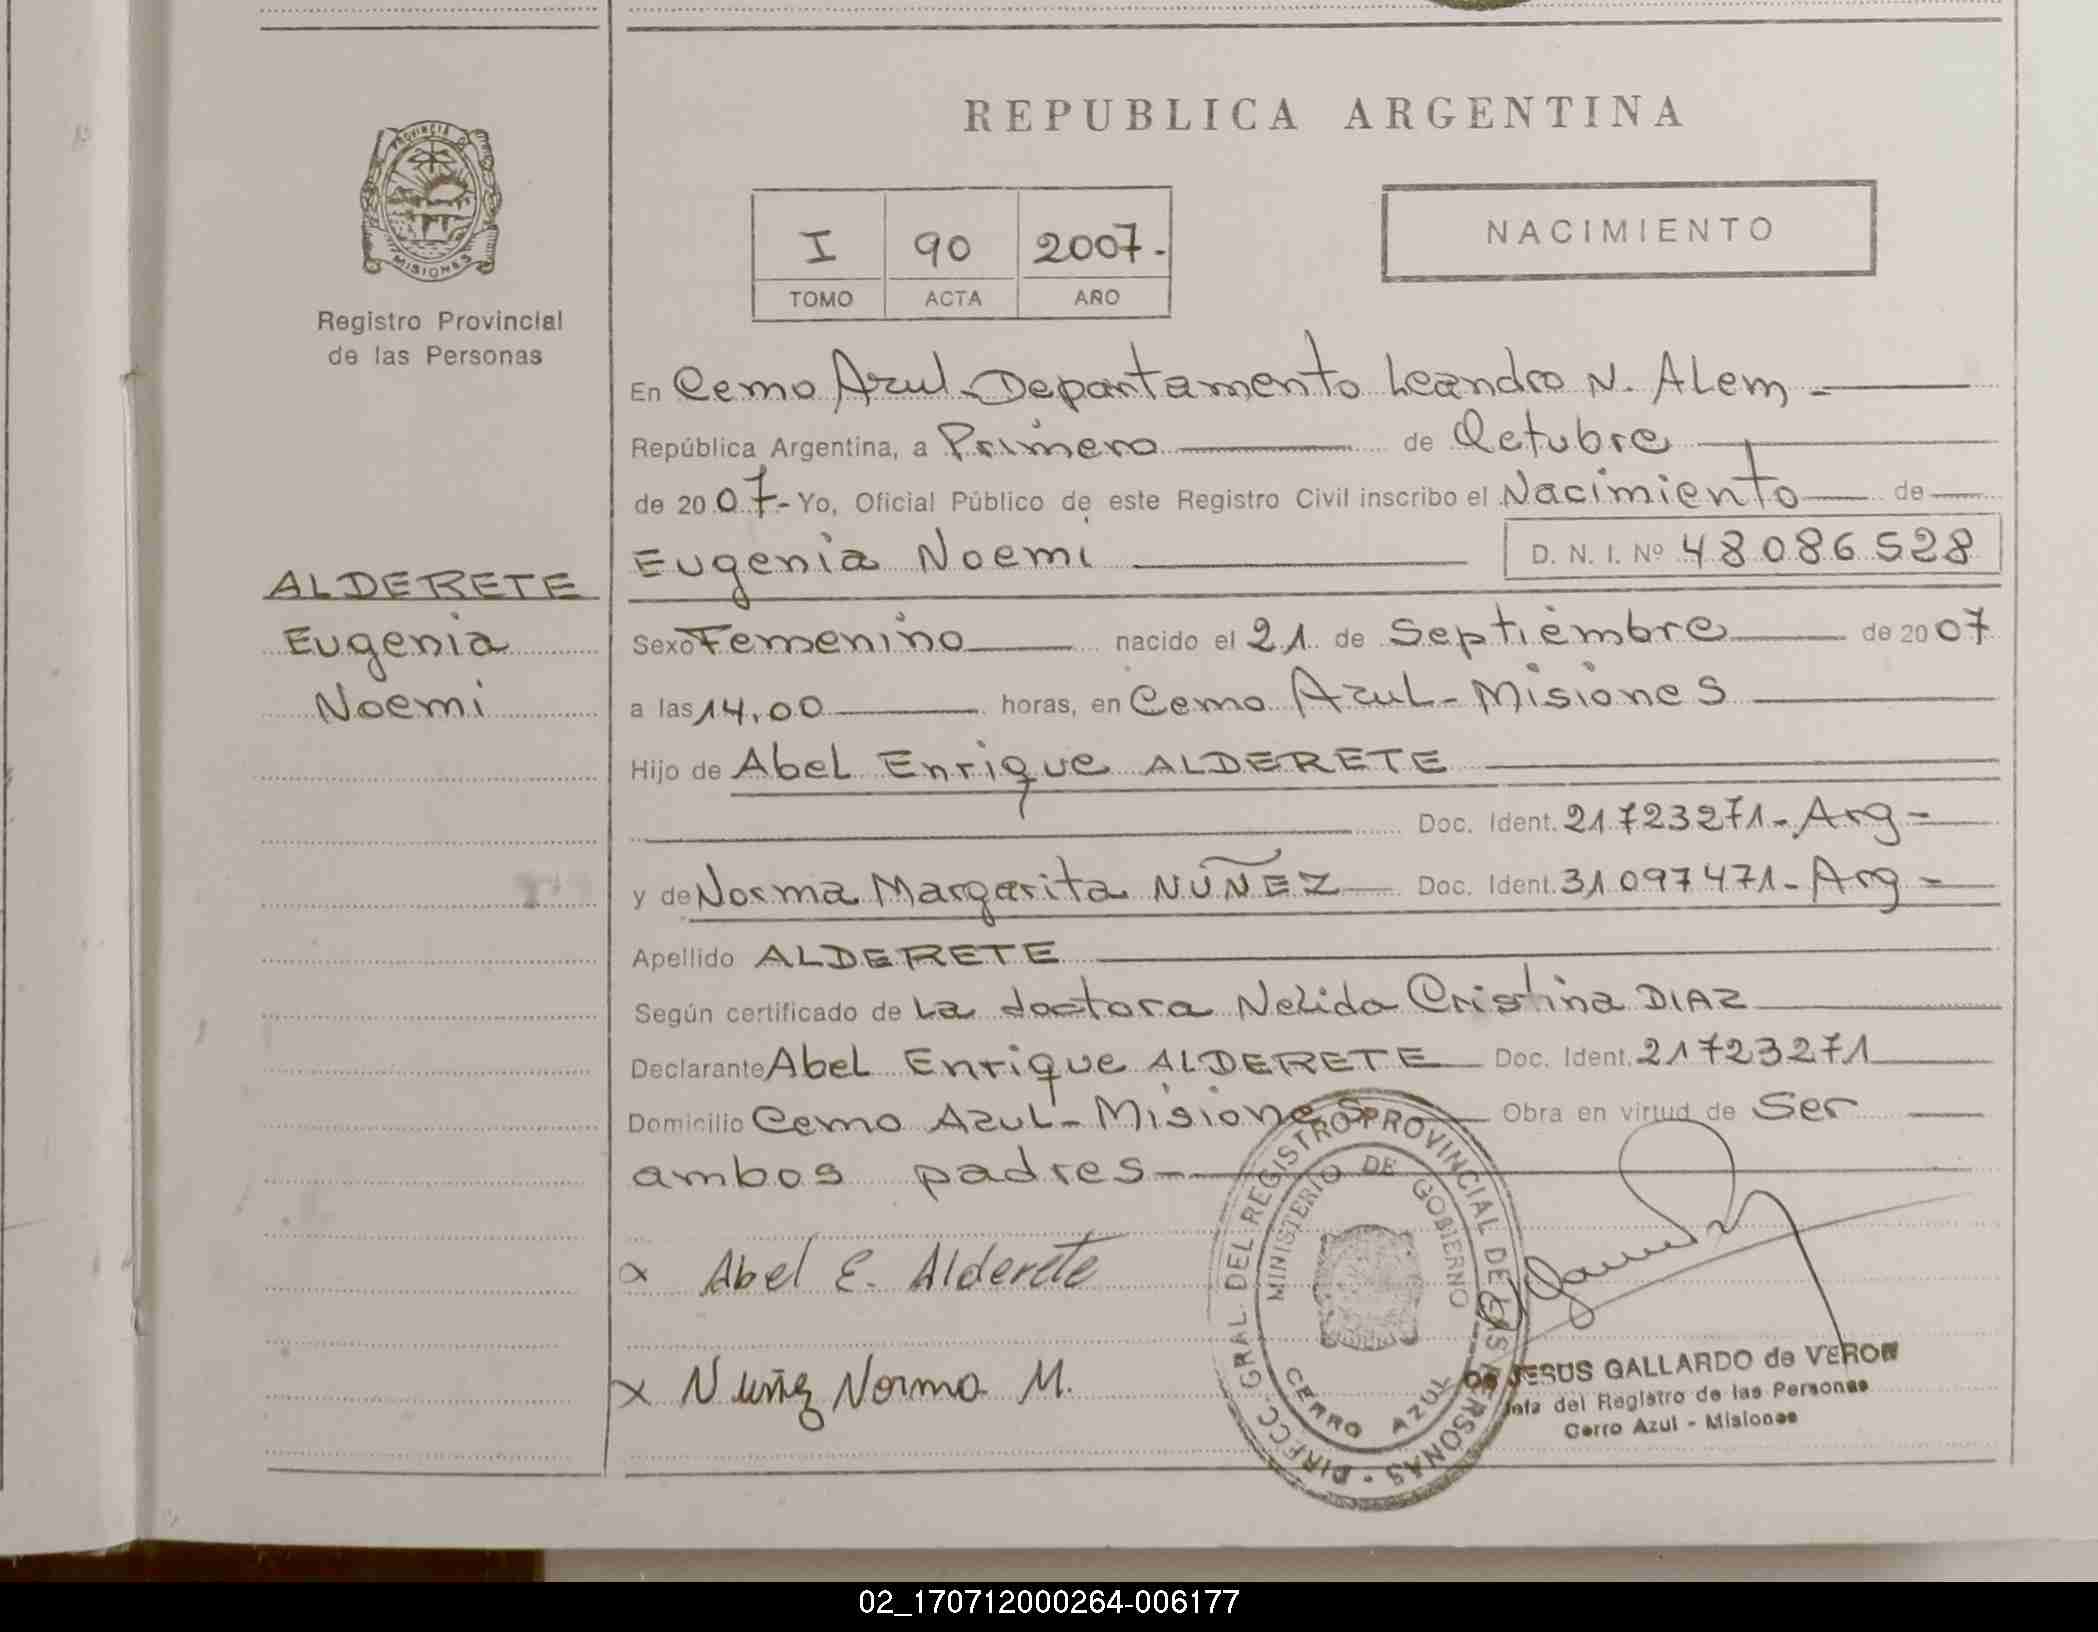 REPUBLICA ARGENTINA
PROVINCIA DE
MISIONES
Registro Provincial
de las Personas
I 90 2007.-
TOMO ACTA AÑO
NACIMIENTO
En Cerro Azul-Departamento Leandro N. Alem-
República Argentina, a Primero de Octubre
de 2007- Yo, Oficial Público de este Registro Civil inscribo el Nacimiento de
Eugenia Noemi D. N. I. Nº 48086528
ALDERETE
Eugenia
Noemi
Sexo Femenino nacido el 21 de Septiembre de 2007
a las 14,00 horas, en Cerro Azul-Misiones
Hijo de Abel Enrique ALDERETE
Doc. Ident. 21723271-Arg-
y de Norma Margarita NUÑEZ Doc. Ident. 31097471-Arg-
Apellido ALDERETE
Según certificado de La doctora Nelida Cristina DIAZ
Declarante Abel Enrique ALDERETE Doc. Ident. 21723271
Domicilio Cerro Azul-Misiones Obra en virtud de Ser
ambos padres-
x Abel E. Alderete
x Nuñez Norma M.
DIRECC. GRAL DEL REGISTRO PROVINCIAL DE LAS PERSONAS
MINISTERIO DE GOBIERNO
CERRO AZUL
DE JESUS GALLARDO de VERON
Jefa del Registro de las Personas
Cerro Azul - Misiones
02_170712000264-006177